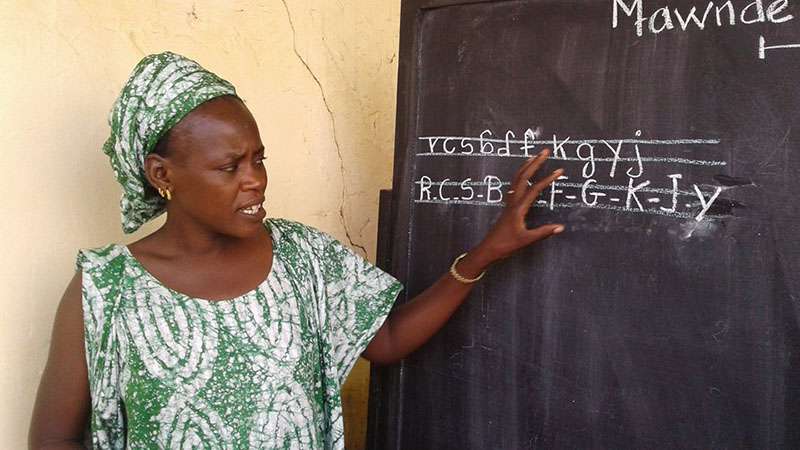 Mawnde
r c s b d f k g y j
R-C-S-B- -F-G-K-J-y